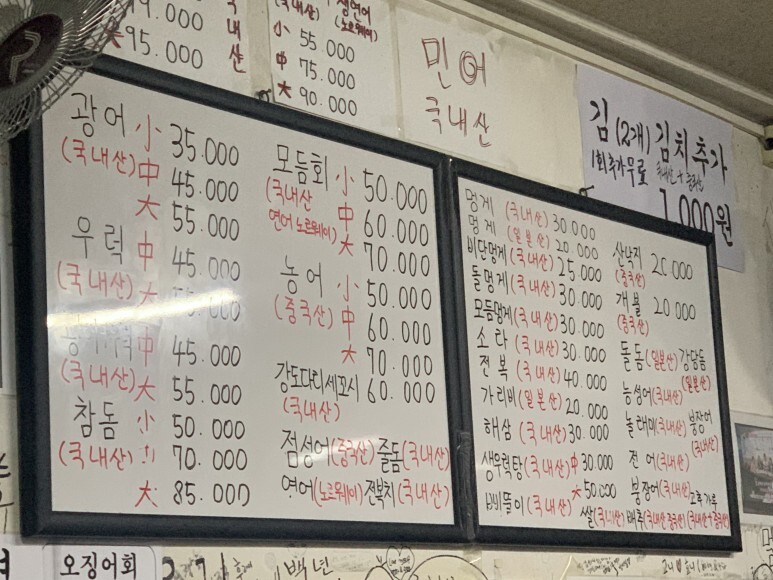 95.000
국내산
(국내산)
생연어
(노르웨이)
小 55.000
中 75.000
大 90.000
민어
국내산
김(2개) 김치추가
1회추가무료 국내산+중국산
1,000원
광어 小 35.000
(국내산) 中 45.000
大 55.000
우럭 中 45.000
(국내산) 大
中 45.000
(국내산) 大 55.000
참돔 小 50.000
(국내산) 中 70.000
大 85.000
모듬회 小 50.000
(국내산 中 60.000
연어 노르웨이) 大 70.000
농어 小 50.000
(중국산) 中 60.000
大 70.000
강도다리세꼬시 60.000
(국내산)
점성어(중국산) 줄돔(국내산)
연어(노르웨이) 전복치(국내산)
멍게 (국내산) 30.000
멍게 (일본산) 20.000
비단멍게(국내산) 25.000
돌멍게(국내산) 30.000
모듬멍게(국내산) 30.000
소라 (국내산) 30.000
전복 (국내산) 40.000
가리비(일본산) 20.000
해삼 (국내산) 30.000
생우럭탕(국내산) 中 30.000
大 50.000
삐뚤이(국내산)
산낙지 20.000
(중국산)
개불 20.000
(중국산)
돌돔(일본산) 강담돔
(일본산)
능성어(국내산)
놀래미(국내산) 붕장어
(국내산)
전어(국내산)
붕장어(국내산) 고추가루
쌀(국내산) 배추(국내산 중국산) (국내산+중국산)
오징어회
백년